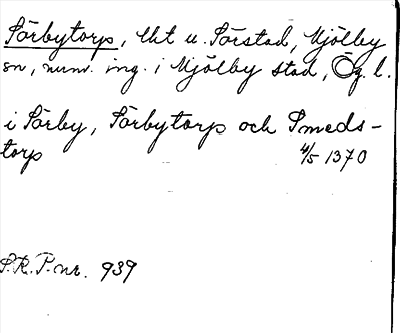 Sörbytorp, lht u. Sörstad, Mjölby
sn, num. ing. i Mjölby stad, Ög. l.
i Sörby, Sörbytorp och Smeds-
torp 4/5 1370
S.R.P. nr. 939